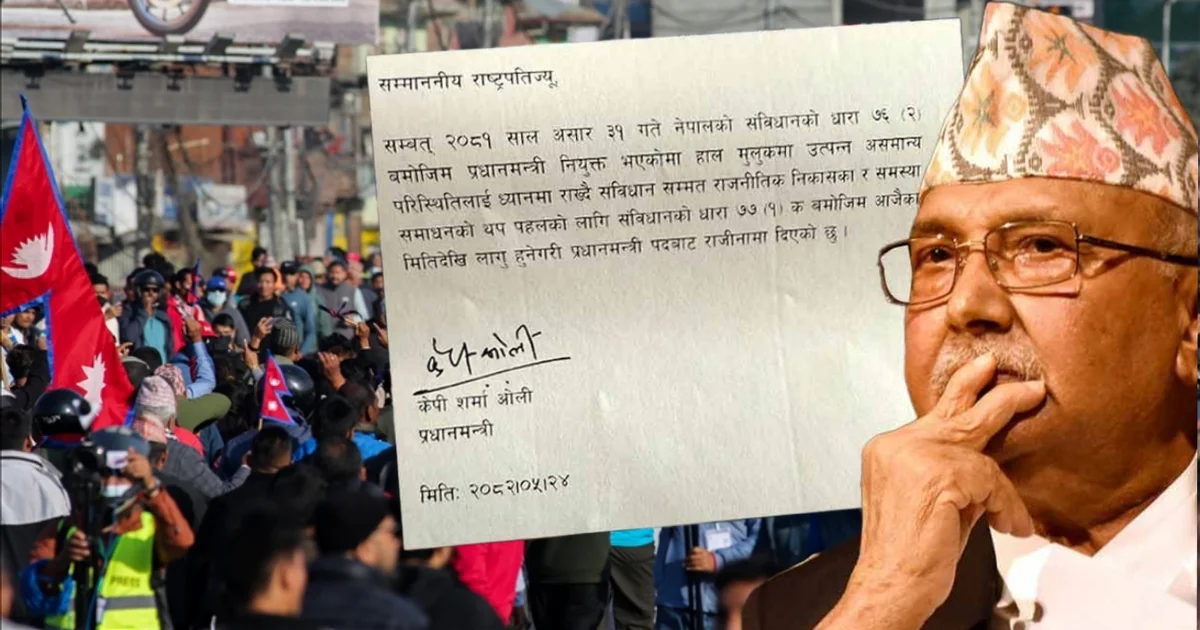 सम्माननीय राष्ट्रपतिज्यू,
सम्बत् २०८१ साल असार ३१ गते नेपालको संविधानको धारा ७६ (२)
बमोजिम प्रधानमन्त्री नियुक्त भएकोमा हाल मुलुकमा उत्पन्न असमान्य
परिस्थितिलाई ध्यानमा राख्दै संविधान सम्मत राजनीतिक निकासका र समस्या
समाधनको थप पहलको लागि संविधानको धारा ७७ (१) क बमोजिम आजैका
मितिदेखि लागु हुनेगरी प्रधानमन्त्री पदबाट राजीनामा दिएको छु ।
केपी शर्मा ओली
प्रधानमन्त्री
मितिः २०८२।०५।२४
PRESS